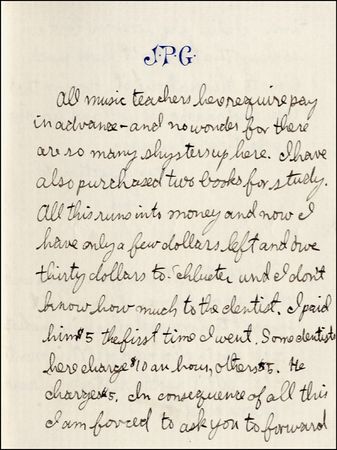 J.P.G.
All music teachers here require pay
in advance - and no wonder for there
are so many shysters up here. I have
also purchased two books for study.
All this runs into money and now I
have only a few dollars left and owe
thirty dollars to Schlueter and I don't
know how much to the dentist. I paid
him $5 the first time I went. Some dentists
here charge $10 an hour, others $5. He
charges $5. In consequence of all this
I am forced to ask you to forward